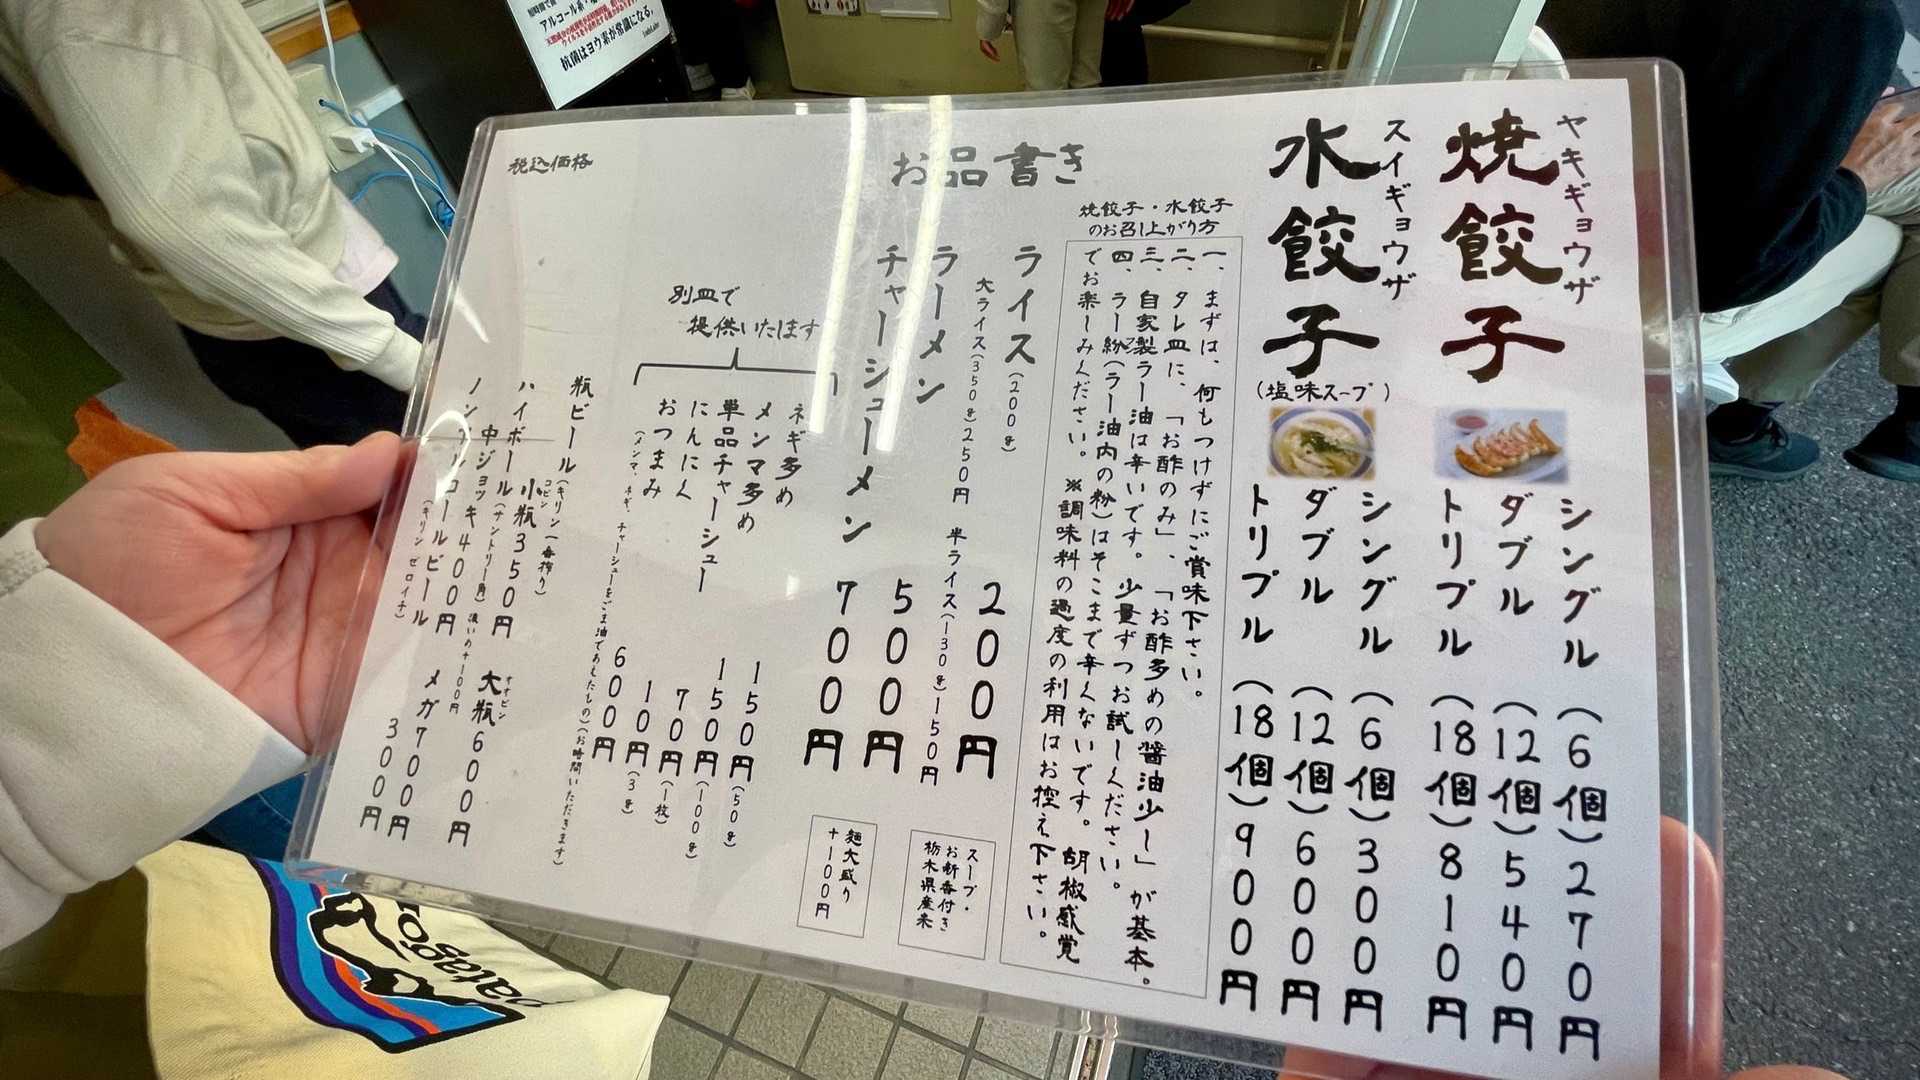 お品書き
税込価格
ヤキギョウザ
焼餃子
シングル(6個)270円
ダブル(12個)540円
トリプル(18個)810円
スイギョウザ
水餃子
(塩味スープ)
シングル(6個)300円
ダブル(12個)600円
トリプル(18個)900円
焼餃子・水餃子
のお召し上がり方
一、まずは、何もつけずにご賞味下さい。
二、タレ皿に、「お酢のみ」、「お酢多めの醤油少し」が基本。
三、自家製ラー油は辛いです。少量ずつお試しください。
四、ラー粉(ラー油内の粉)はそこまで辛くないです。胡椒感覚
でお楽しみください。※調味料の過度の利用はお控え下さい。
ライス(200g) 200円
大ライス(350g)250円 半ライス(130g)150円
ラーメン 500円
チャーシューメン 700円
スープ・
お新香付き
栃木県産米
麺大盛り
+100円
別皿で
提供いたします
ネギ多め 150円(50g)
メンマ多め 150円(100g)
単品チャーシュー 70円(1枚)
にんにく 10円(3g)
おつまみ 600円
(メンマ、ネギ、チャーシューをごま油であえたもの)(お時間いただきます)
瓶ビール(キリン一番搾り)
小瓶350円 大瓶600円
コビン オオビン
ハイボール(サントリー角)濃いめ+100円
中ジョッキ400円 メガ700円
ノンアルコールビール 300円
(キリン ゼロイチ)
アルコール系・
抗菌はヨウ素が常識になる。
patagonia